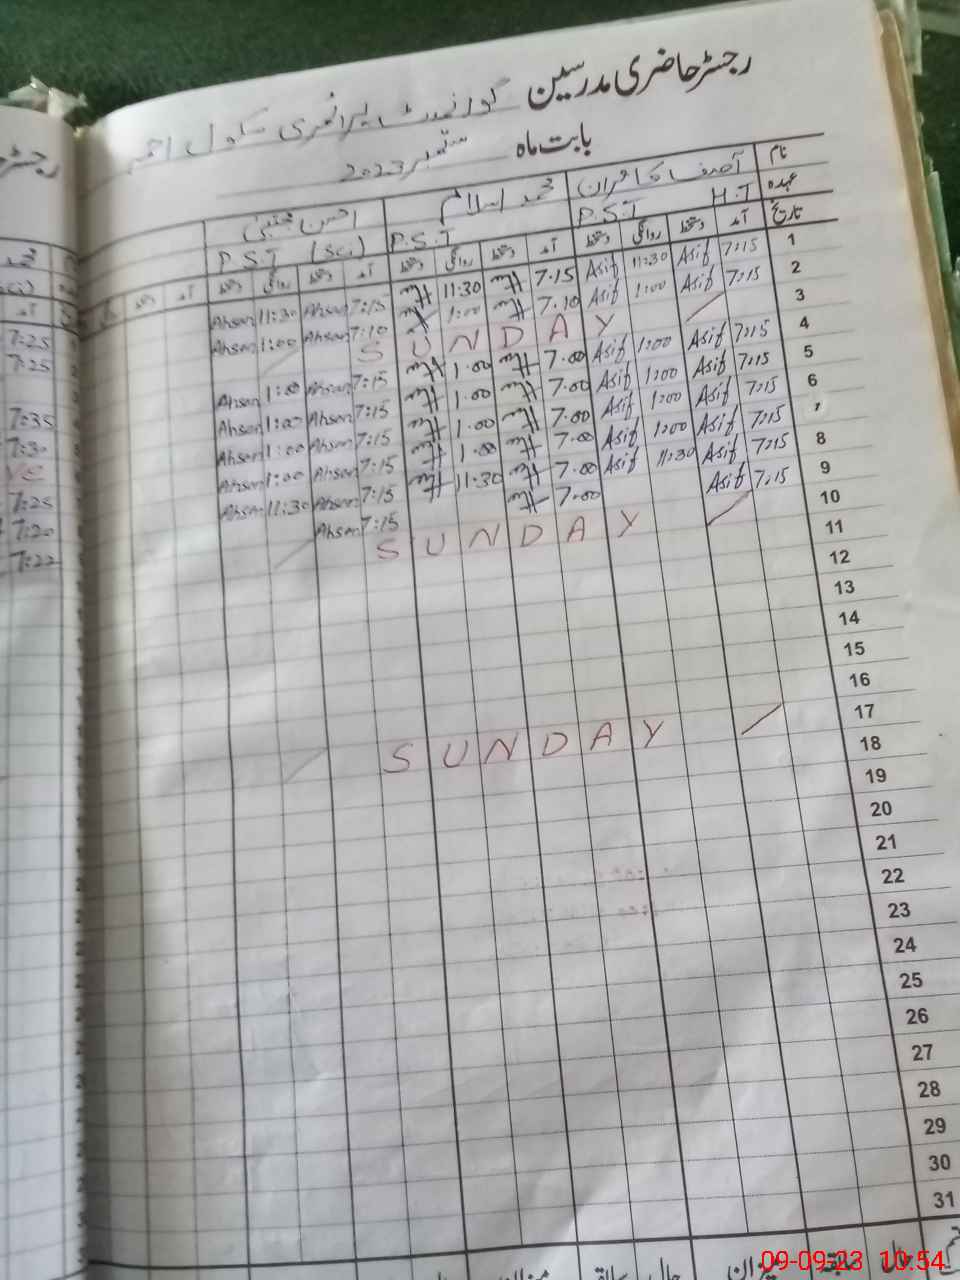 رجسٹر حاضری مدرسین گورنمنٹ پرائمری سکول احمد
بابت ماہ ستمبر 2023
نام آصف کامران محمد اسلام احسن مجتبیٰ
عہدہ H.T P.S.T P.S.T P.S.T (Sci)
تاریخ آمد دستخط روانگی دستخط آمد دستخط روانگی دستخط آمد دستخط روانگی دستخط آمد دستخط
1 7:15 Asif 11:30 Asif 7.15 11:30 7:15 Ahsan 11:30 Ahsan
2 7:15 Asif 1:00 Asif 7.10 1:00 7:10 Ahsan 1:00 Ahsan
3 SUNDAY
4 7:15 Asif 1:00 Asif 7.00 1.00 7:15 Ahsan 1:00 Ahsan
5 7:15 Asif 1:00 Asif 7.00 1.00 7:15 Ahsan 1:00 Ahsan
6 7:15 Asif 1:00 Asif 7.00 1.00 7:15 Ahsan 1:00 Ahsan
7 7:15 Asif 1:00 Asif 7.00 1.00 7:15 Ahsan 1:00 Ahsan
8 7:15 Asif 11:30 Asif 7.00 11:30 7:15 Ahsan 11:30 Ahsan
9 7:15 Asif 7.00 7:15 Ahsan
10 SUNDAY
11
12
13
14
15
16
17 SUNDAY
18
19
20
21
22
23
24
25
26
27
28
29
30
31
حال سابقہ میزان حال سابقہ میزان
7:25
7:25
7:35
7:30
ve
7:25
7:20
7:22
09-09-23 10:54